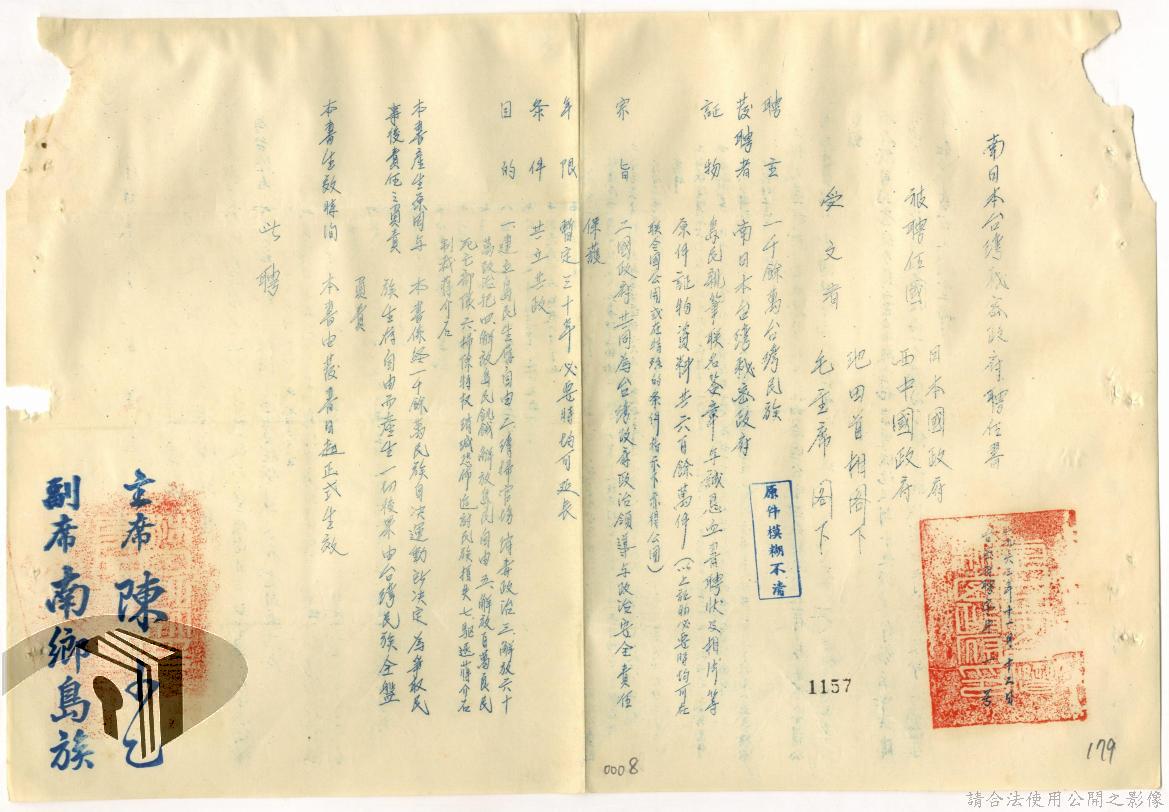 南日本台灣秘密政府聘任書
被聘任國 日本國政府
西中國政府
受文者 池田首相閣下
毛主席 閣下
聘主 一千餘萬台灣民族
發聘者 南日本台灣秘密政府
証物 島民親筆聯名簽章年誠懇血書聘狀及相片等
原件証物資料共六百餘萬件(以上証物必要時均可在
聯合國公開或在特殊的条件指示下亦得公開)
宗旨 二國政府共同為台灣政府政治領導与政治安全責任
保護
年限 暫定三十年必要時均可延長
条件 共立共政
目的 一建立島民生存自由二清掃官場消毒政治三解放六十
萬政治犯四解放島民飢餓解放島民自由五解放百萬良民
死亡部隊六掃除特权消滅恐怖追討民族損失七驅逐蔣介石
制裁蔣介石
本書產生原因与 本書係經一千餘萬民族自决運動所决定為爭取民
事後責任之負責 族生存自由而產生一切後果由台灣民族全盤
負責
本書生效時間 本書由發書日起正式生效
此聘
主席 陳
副席 南鄉島族
原件模糊不清
1157
0008
179
請合法使用公開之影像